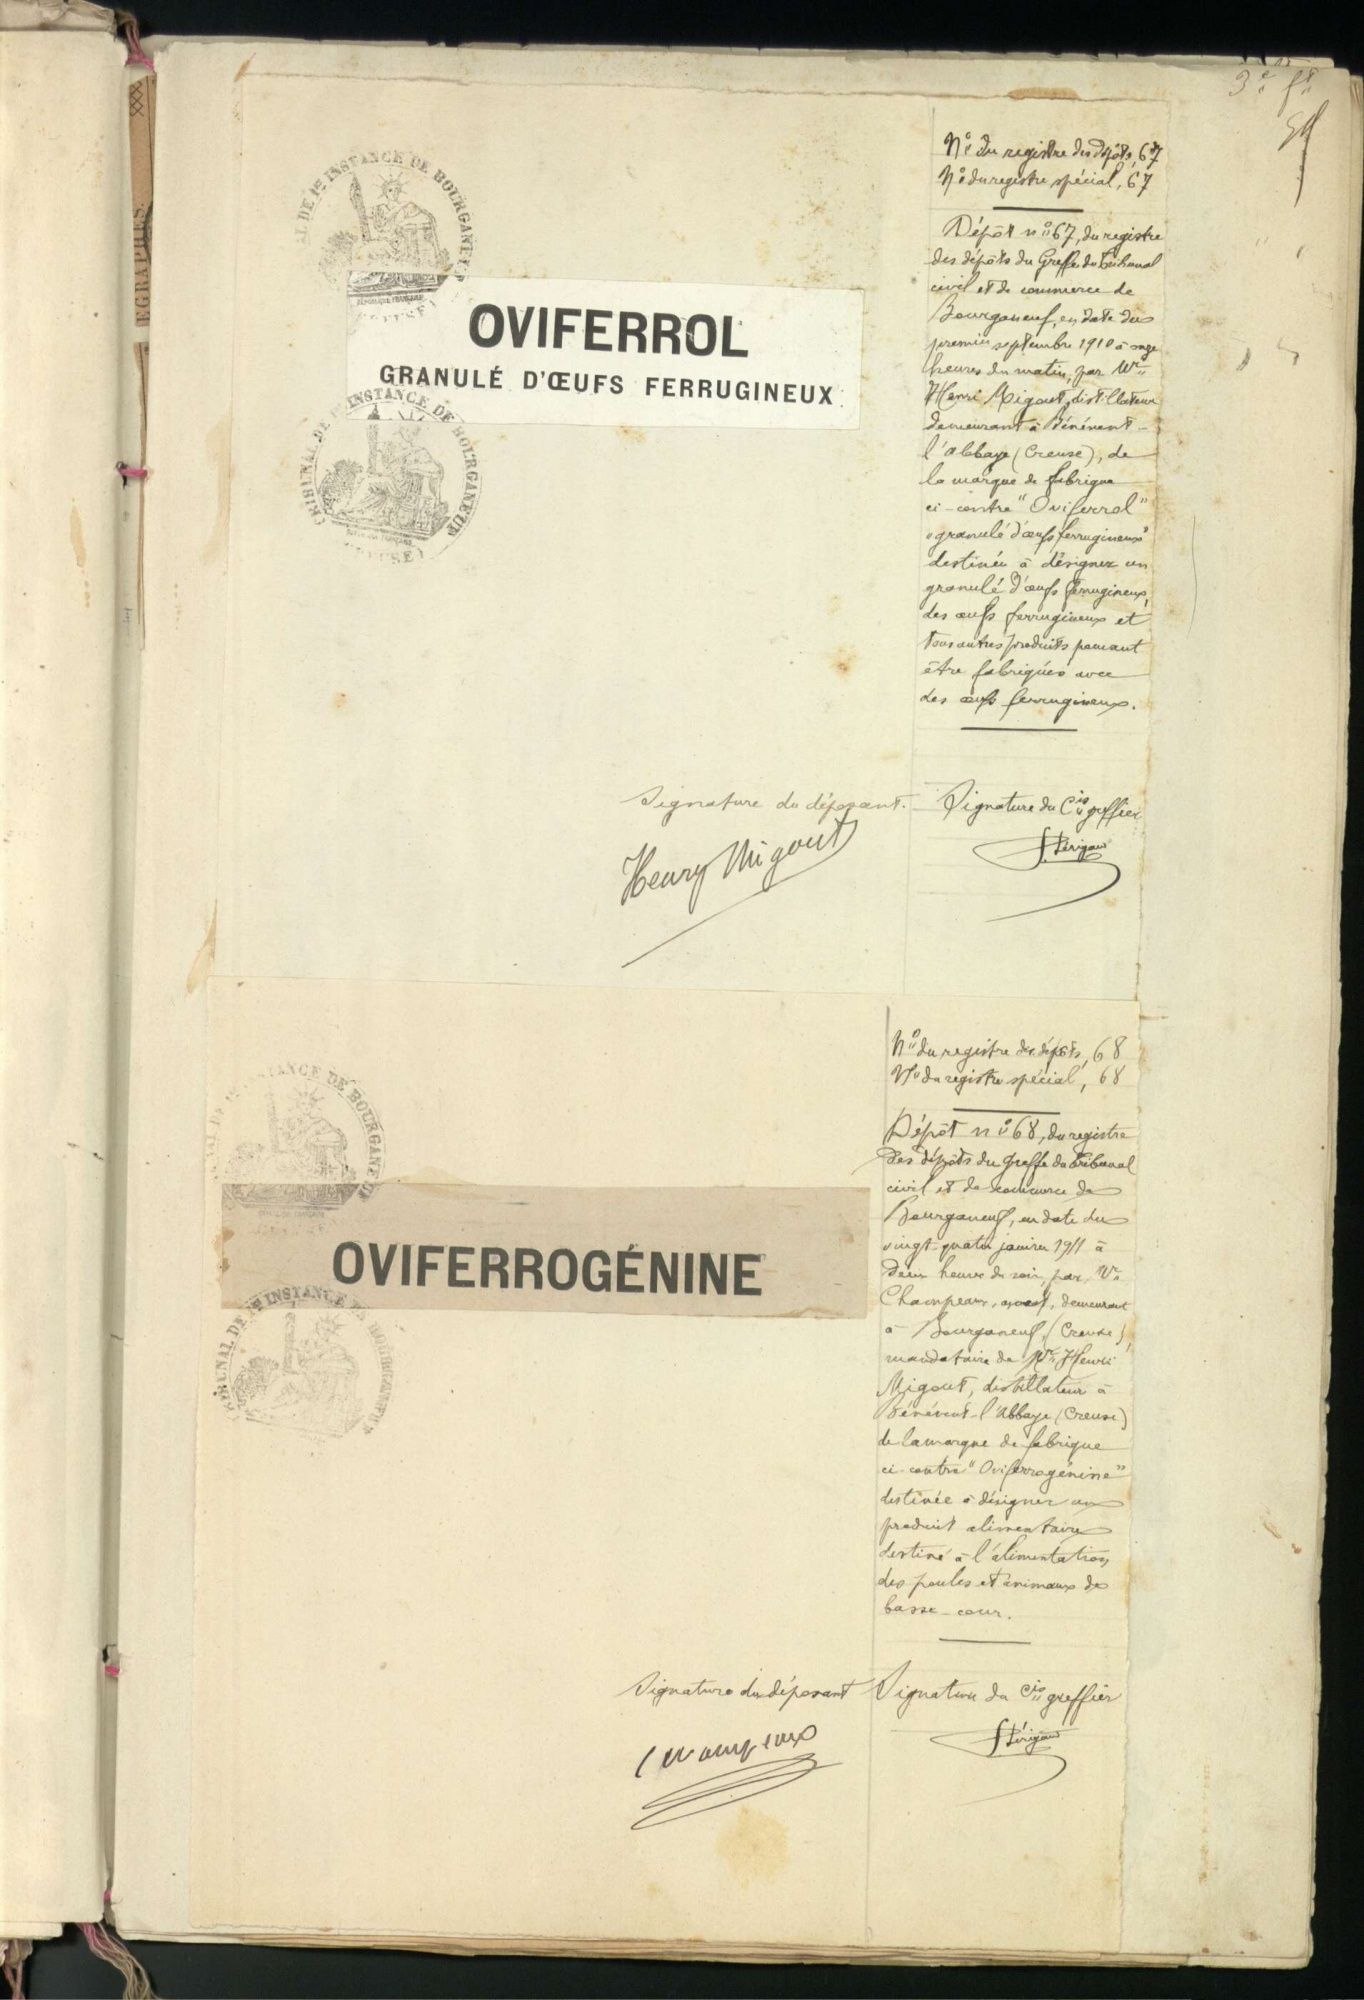 3e ft
EGRAPHES.
AL DE 1re INSTANCE DE BOURGANEUF
RÉPUBLIQUE FRANÇAISE
(CREUSE)
OVIFERROL
GRANULÉ D'ŒUFS FERRUGINEUX
TRIBUNAL DE 1re INSTANCE DE BOURGANEUF
RÉPUBLIQUE FRANÇAISE
(CREUSE)
No du registre des dépôts, 67
No du registre spécial, 67
Dépôt no 67, du registre
des dépôts du Greffe du Tribunal
civil et de commerce de
Bourganeuf, en date du
premier septembre 1910 à onze
heures du matin, par Mr
Henri Migout, distillateur
demeurant à Bénévent-
l'Abbaye (Creuse), de
la marque de fabrique
ci-contre "Oviferrol"
"granulé d'œufs ferrugineux"
destinée à désigner un
granulé d'œufs ferrugineux,
des œufs ferrugineux et
tous autres produits pouvant
être fabriqués avec
des œufs ferrugineux.
Signature du déposant.
Henry Migout
Signature du Cis greffier
Périgaud
TANCE DE BOURGANEUF
OVIFERROGÉNINE
TRIBUNAL DE 1re INSTANCE DE BOURGANEUF
No du registre des dépôts, 68
No du registre spécial, 68
Dépôt no 68, du registre
des dépôts du Greffe du Tribunal
civil et de commerce de
Bourganeuf, en date du
vingt-quatre janvier 1911 à
deux heures du soir, par Mr
Champeaux, avocat, demeurant
à Bourganeuf, (Creuse),
mandataire de Mr Henri
Migout, distillateur à
Bénévent-l'Abbaye (Creuse)
de la marque de fabrique
ci-contre "Oviferrogénine"
destinée à désigner un
produit alimentaire
destiné à l'alimentation
des poules et animaux de
basse-cour.
Signature du déposant
Champeaux
Signature du Cis greffier
Périgaud